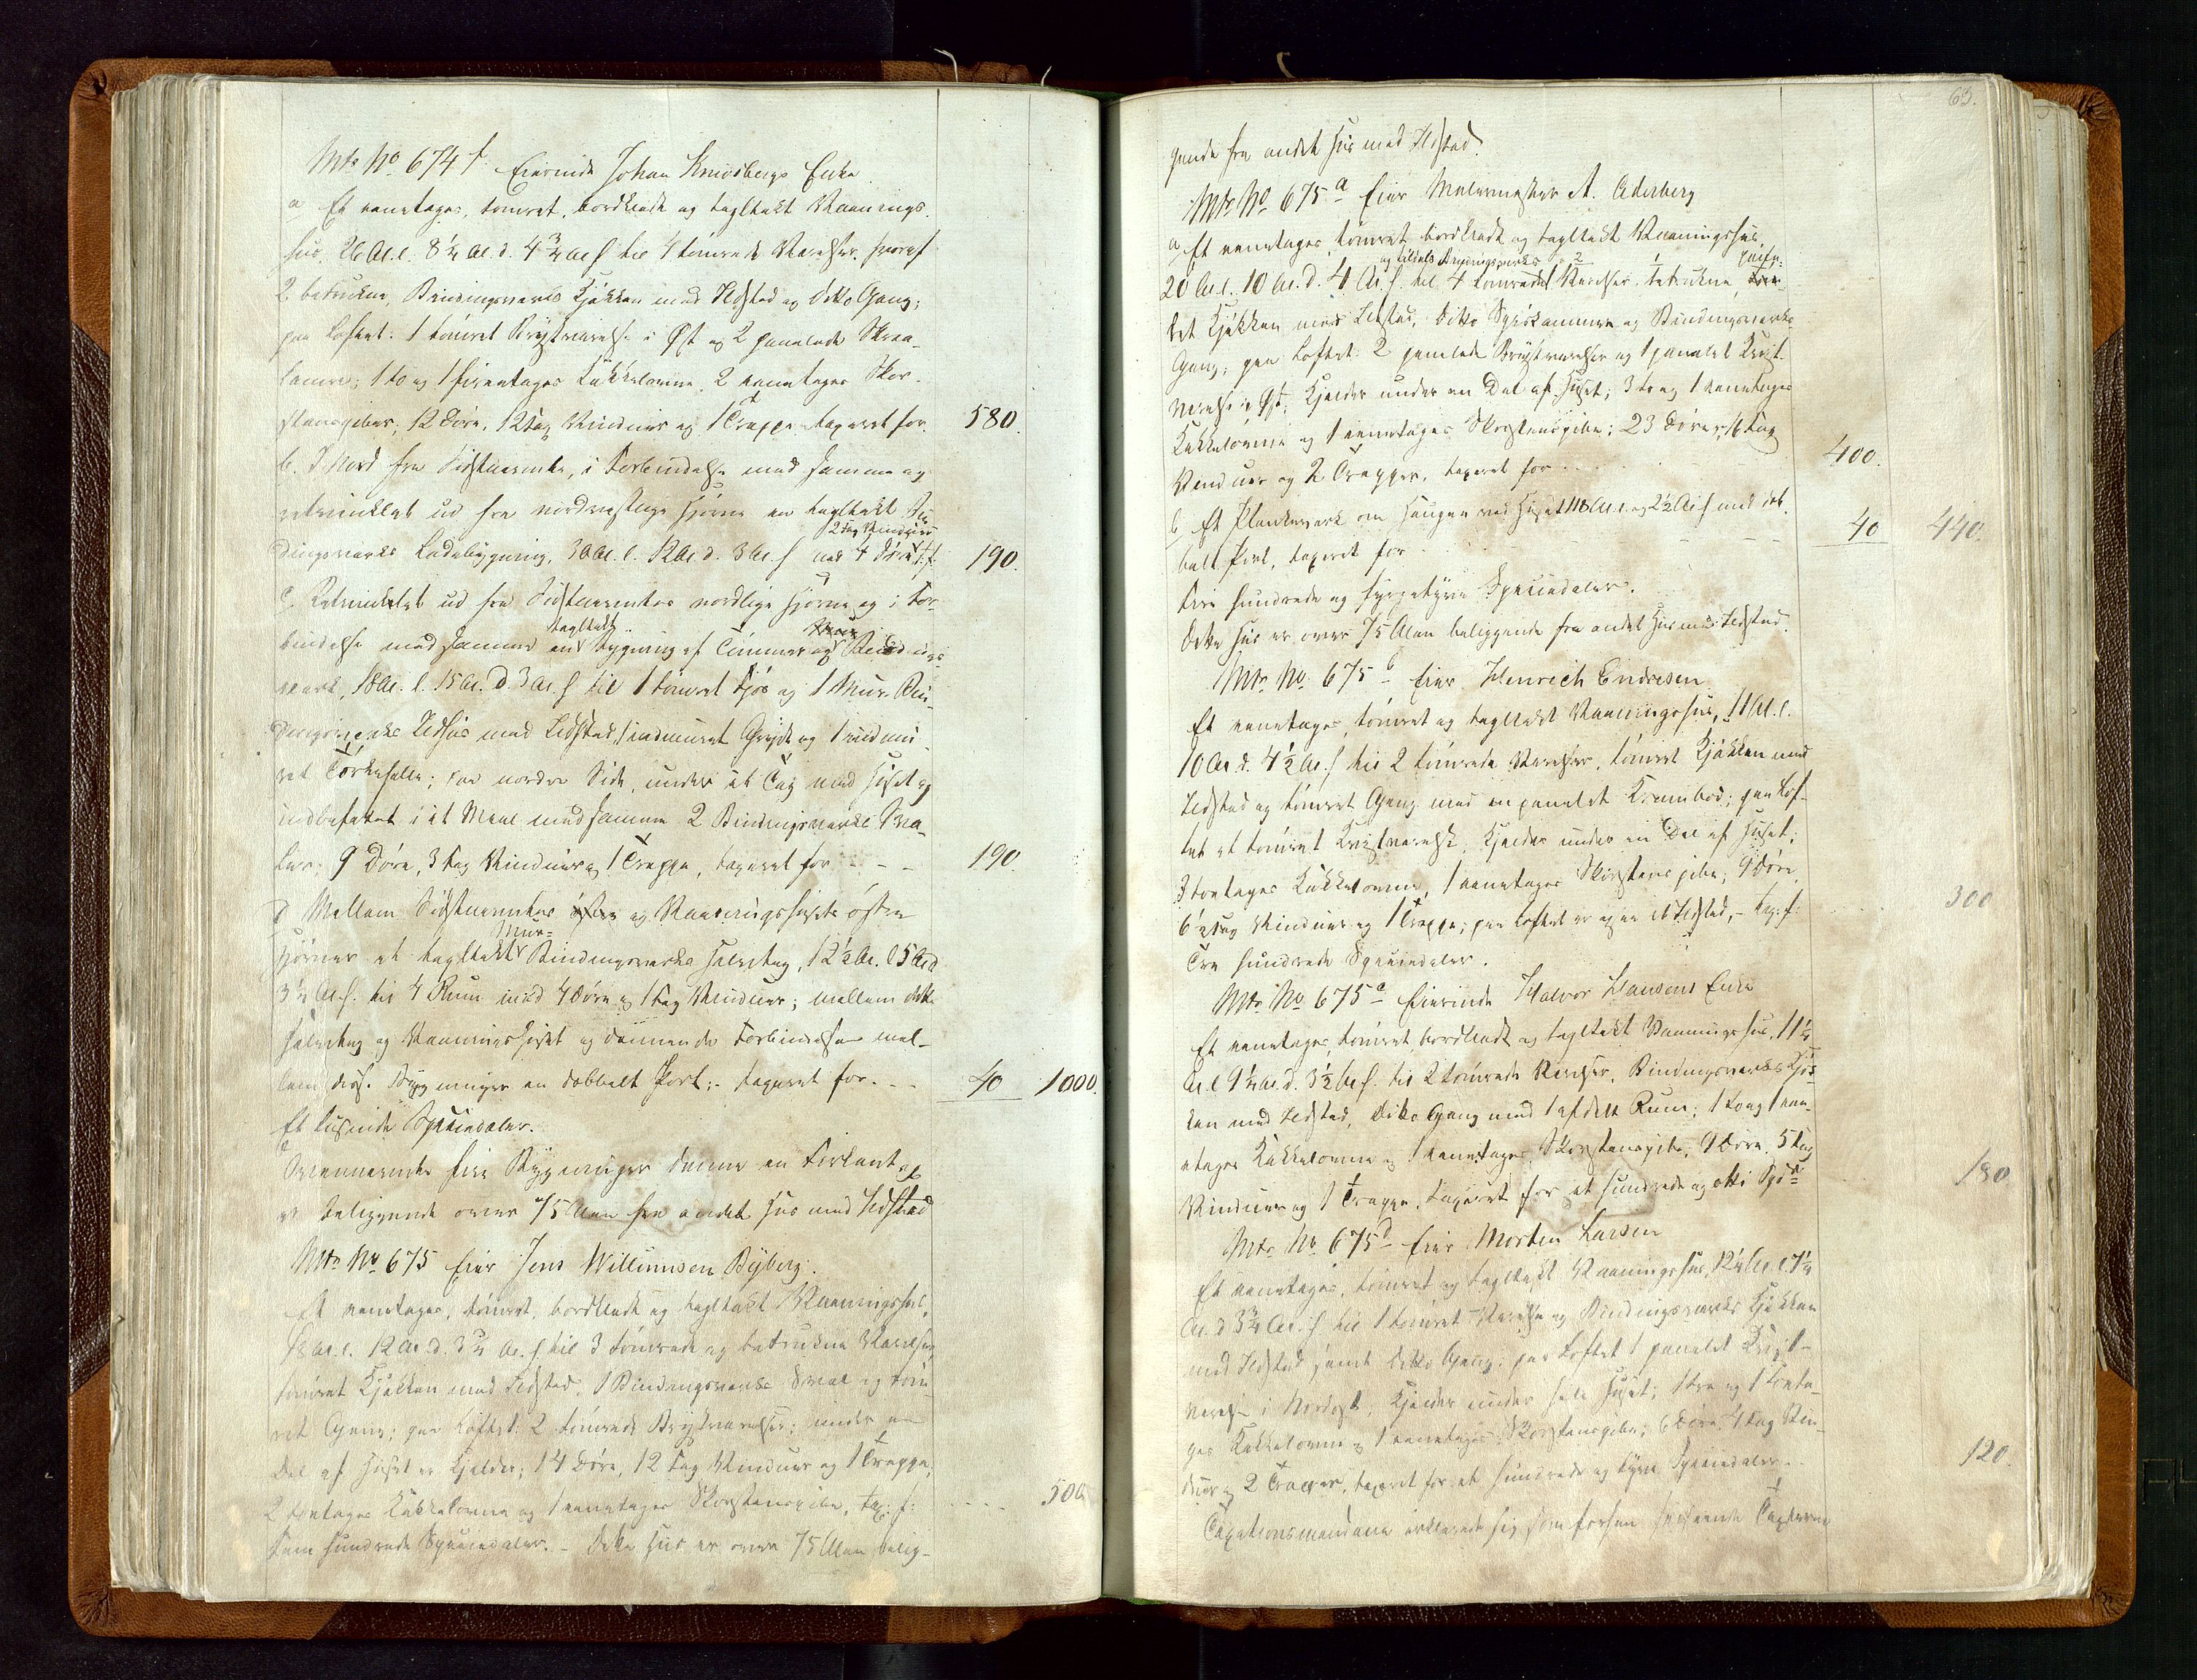 Mtr No 674 f. Eierinde Johan Knudsbergs Enke
a Et eenetages, tømret, bordklædt og tagltækt Vaanings-
huus, 26 Al. l. 8½ Al. d. 4¾ Al h til 4 tømrede Værelser, hvoraf
2 betrukne, Bindingsværks Kjøkken med Ildsted og ditto Gang;
paa Loftet: 1 tømret Brystværelse i Øst og 2 panelede Skraa-
kamre; 1 to og 1 fireetages Kakkelovne, 2 eenetages Skor-
stenspiber, 12 Døre, 12 Fag Vinduer og 1 Trappe taxeret for
580.
b. I Nord fra Sidstnævnte, i Forbindelse med samme og
retvinklet ud fra nordvestlige Hjørne en tagltækt Bin-
2 Fag Vinduer
dingsværks Ladebygning, 30 Al. l. 12 Al. d. 3 Al. h med 4 Døre t. f.
190.
c, Retvinklet ud fra Sidstnævntes nordlige Hjørne og i For-
tagltækt
bindelse med samme en Bygning af Tømmer og Bindings-
værk, 18 Al. l. 15 Al. d. 3 Al. h til 1 tømret Fjøs og 1 Muur-Bin-
dingsværks Ildhus med Ildsted, 1 indmuret Gryde og 1 indmu-
ret Tørkehelle; paa nordre Side, under et Tag med Huset og
indbefattet i et Maal med samme 2 Bindingsværks Sva-
ler; 9 Døre, 3 Fag Vinduer og 1 Trappe, taxeret for - -
190.
d Mellem Sidstnævntes og Vaaningshusets østre
Muur-
Hjørner et tagltækt Bindingsværks Halvtag, 12½ Al. l 5 Al d
3½ Al. h. til 4 Rum med 4 Døre og 1 Fag Vinduer; mellem dette
Halvtag og Vaaningshuset og dannende Forbindelse mel-
lem disse Bygninger en dobbelt Port; - taxeret for. - -
40 1000.
Et tusinde Speciedaler.
Ovennævnte fire Bygninger danne en Firkant og
er beliggende over 75 Alen fra andet Huus med Ildsted
Mtr No 675 Eier Jens Willumsen Byberg.
Et eenetages, tømret, bordklædt og tagltækt Vaaningshus,
18 Al. l. 12 Al. d. 3¾ Al. h til 3 tømrede og betrukne Værelser,
tømret Kjøkken med Ildsted, 1 Bindingsværks Sval og tøm-
ret Gang; paa Loftet: 2 tømrede Brystværelser; under en
Del af Huset er Kjelder; 14 Døre, 12 Fag Vinduer og 1 Trappe,
2 toetages Kakkelovne og 1 eenetages Skorstenspibe, tax: f:
500
Fem hundrede Speciedaler. - Dette Hus er over 75 Alen belig-
63.
gende fra andet Hus med Ildsted.
Mtr No 675 a Eier Malermester A. Aderberg
a, Et eenetages, tømret, bordklædt og tagltækt Vaaningshus,
og tildels Bindingsværks
20 Al. l. 10 Al. d. 4 Al. h. til 4 tømrede Værelser, betrukne,
det Kjøkken med Ildsted, ditto Spiskammer og Bindingsværks
Gang; paa Loftet: 2 panelede Brystværelser og 1 panelet Kvist-
værelse i Øst; Kjelder under en Del af Huset; 3 to og 1 eenetages
Kakkelovne og 1 eenetages Skorstenspibe; 23 Døre, 16 Fag
Vinduer og 2 Trapper, taxeret for . .
400.
b, Et Plankeværk om Haugen ved Huset 118 Al. l. og 2½ Al h med dob-
belt Port, taxeret for
40 440.
Fire hundrede og fyrgetyve Speciedaler.
Dette Hus er over 75 Alen beliggende fra andet Hus med Ildsted.
Mtr No. 675 b Eier Henrich Endresen
Et eenetages, tømret og tagltækt Vaaningshus, 11 Al. l.
10 Al. d. 4½ Al. h til 2 tømrede Værelser, tømret Kjøkken med
Ildsted og tømret Gang med en panelet Krambod; paa Lof-
tet et tømret Kvistværelse, Kjelder under en Del af Huset;
3 toetages Kakkelovne, 1 eenetages Skorstenspibe, 9 Døre,
6½ Fag Vinduer og 1 Trappe; paa Loftet er ogsaa et Ildsted, - tax: f:
300
Tre hundrede Speciedaler.
Mtr No 675 c Eierinde Halvor Hansens Enke
Et eenetages, tømret, bordklædt og tagltækt Vaaningshus, 11½
Al. l 9½ Al. d. 3½ Al h. til 2 tømrede Værelser, Bindingsværks Kjøk-
ken med Ildsted, ditto Gang med 1 afdelt Rum; 1 to og 1 een-
etages Kakkelovne og 1 eenetages Skorstenspibe, 9 Døre, 5 Fag
Vinduer og 1 Trappe, taxeret for et hundrede og otti Spd.
180
Mtr No 675 d Eier Morten Larsen
Et eenetages, tømret og tagltækt Vaaningshus, 12½ Al. l. 7½
Al. d 3¾ Al. h til 1 tømret Værelse og Bindingsværks Kjøkken
med Ildsted samt ditto Gang; paa Loftet 1 panelet Kvist-
værelse i Nordost; Kjelder under hele Huset; 1 tre og 1 toeta-
ges Kakkelovne og 1 eenetages Skorstenspibe; 6 Døre, 4 Fag Vin-
duer og 2 Trapper, taxeret for et hundrede og tyve Speciedaler. .
120.
Taxationsmændene erklærede sig som forhen Taxterne